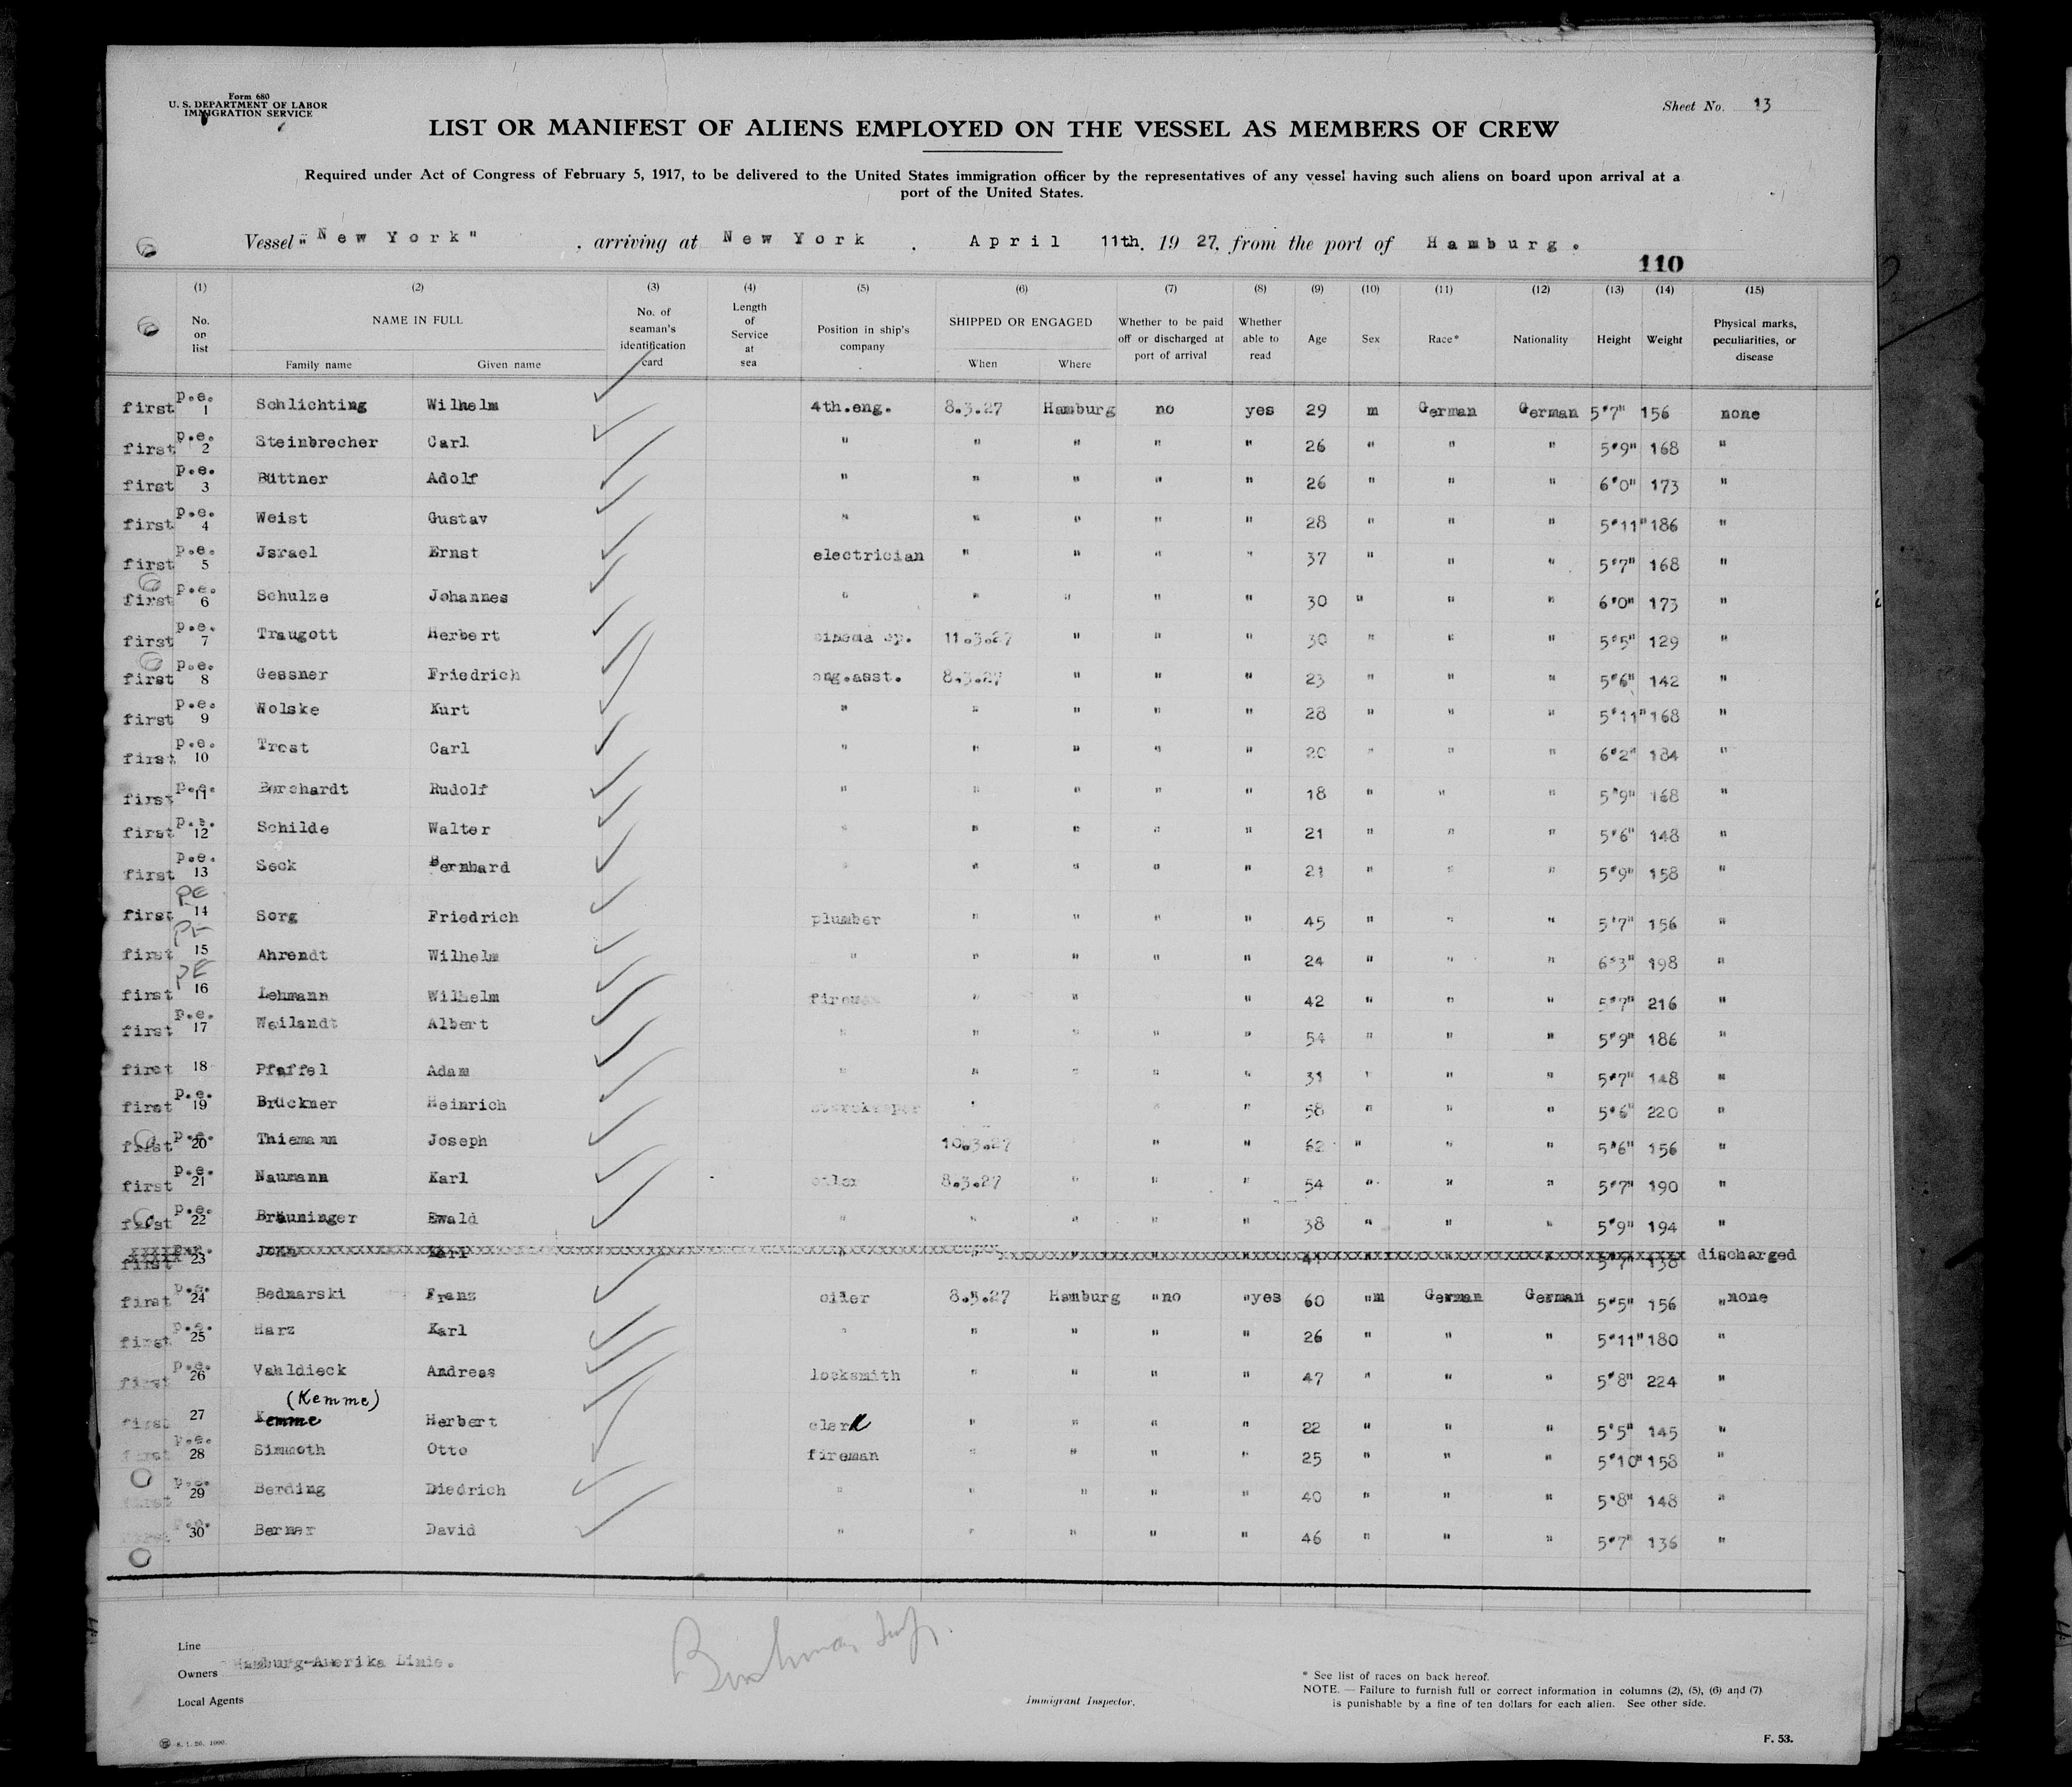 Form 680
U. S. DEPARTMENT OF LABOR
IMMIGRATION SERVICE
Sheet No. 13
LIST OR MANIFEST OF ALIENS EMPLOYED ON THE VESSEL AS MEMBERS OF CREW
Required under Act of Congress of February 5, 1917, to be delivered to the United States immigration officer by the representatives of any vessel having such aliens on board upon arrival at a
port of the United States.
Vessel "New York", arriving at New York, April 11th, 1927, from the port of Hamburg.
110
(1) (2) (3) (4) (5) (6) (7) (8) (9) (10) (11) (12) (13) (14) (15)
No. on list NAME IN FULL Family name Given name No. of seaman's identification card Length of Service at sea Position in ship's company SHIPPED OR ENGAGED When Where Whether to be paid off or discharged at port of arrival Whether able to read Age Sex Race* Nationality Height Weight Physical marks, peculiarities, or disease
first p.e. 1 Schlichting Wilhelm 4th.eng. 8.3.27 Hamburg no yes 29 m German German 5'7" 156 none
first p.e. 2 Steinbrecher Carl " " " " " 26 " " " 5'9" 168 "
first p.e. 3 Büttner Adolf " " " " " 26 " " " 6'0" 173 "
first p.e. 4 Weist Gustav " " " " " 28 " " " 5'11" 186 "
first p.e. 5 Jsrael Ernst electrician " " " " 37 " " " 5'7" 168 "
first p.e. 6 Schulze Johannes " " " " " 30 " " " 6'0" 173 "
first p.e. 7 Traugott Herbert cinema op. 11.3.27 " " " 30 " " " 5'5" 129 "
first p.e. 8 Gessner Friedrich eng.asst. 8.3.27 " " " 23 " " " 5'6" 142 "
first p.e. 9 Wolske Kurt " " " " " 28 " " " 5'11" 168 "
first p.e. 10 Trost Carl " " " " " 20 " " " 6'2" 184 "
first p.e. 11 Borchardt Rudolf " " " " " 18 " " " 5'9" 168 "
first p.e. 12 Schilde Walter " " " " " 21 " " " 5'6" 148 "
first p.e. 13 Seck Bernhard " " " " " 21 " " " 5'9" 158 "
first PE 14 Sorg Friedrich plumber " " " " 45 " " " 5'7" 156 "
first PE 15 Ahrendt Wilhelm " " " " " 24 " " " 6'3" 198 "
first PE 16 Lehmann Wilhelm fireman " " " 42 " " " 5'7" 216 "
first p.e. 17 Weilandt Albert " " " " " 54 " " " 5'9" 186 "
first 18 Pfaffel Adam " " " " " 31 " " " 5'7" 148 "
first p.e. 19 Brückner Heinrich storekeeper " " " 58 " " " 5'6" 220 "
first p.e. 20 Thiemann Joseph 10.3.27 " " 62 " " " 5'6" 156 "
first p.e. 21 Naumann Karl oiler 8.3.27 " " " 54 " " " 5'7" 190 "
first p.e. 22 Bräuninger Ewald " " " " " 38 " " " 5'9" 194 "
first 23 Karl 5'7" 138 discharged
first p.e. 24 Bednarski Franz oiler 8.3.27 Hamburg "no "yes 60 "m German German 5'5" 156 "none
first p.e. 25 Harz Karl " " " " " 26 " " " 5'11" 180 "
first p.e. 26 Vahldieck Andreas locksmith " " " " 47 " " " 5'8" 224 "
(Kemme)
first 27 Kemme Herbert clerk " " " " 22 " " " 5'5" 145 "
first p.e. 28 Simmoth Otto fireman " " " " 25 " " " 5'10" 158 "
first p.e. 29 Berding Diedrich " " " " " 40 " " " 5'8" 148 "
first p.e. 30 Bernar David " " " " " 46 " " " 5'7" 136 "
Line
Owners Hamburg-Amerika Linie.
Local Agents
Immigrant Inspector.
* See list of races on back hereof.
NOTE. — Failure to furnish full or correct information in columns (2), (5), (6) and (7)
is punishable by a fine of ten dollars for each alien. See other side.
F. 53.